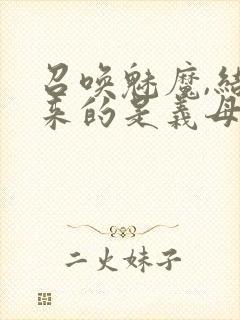 召唤魅魔,结
来的是義母
二火妹子